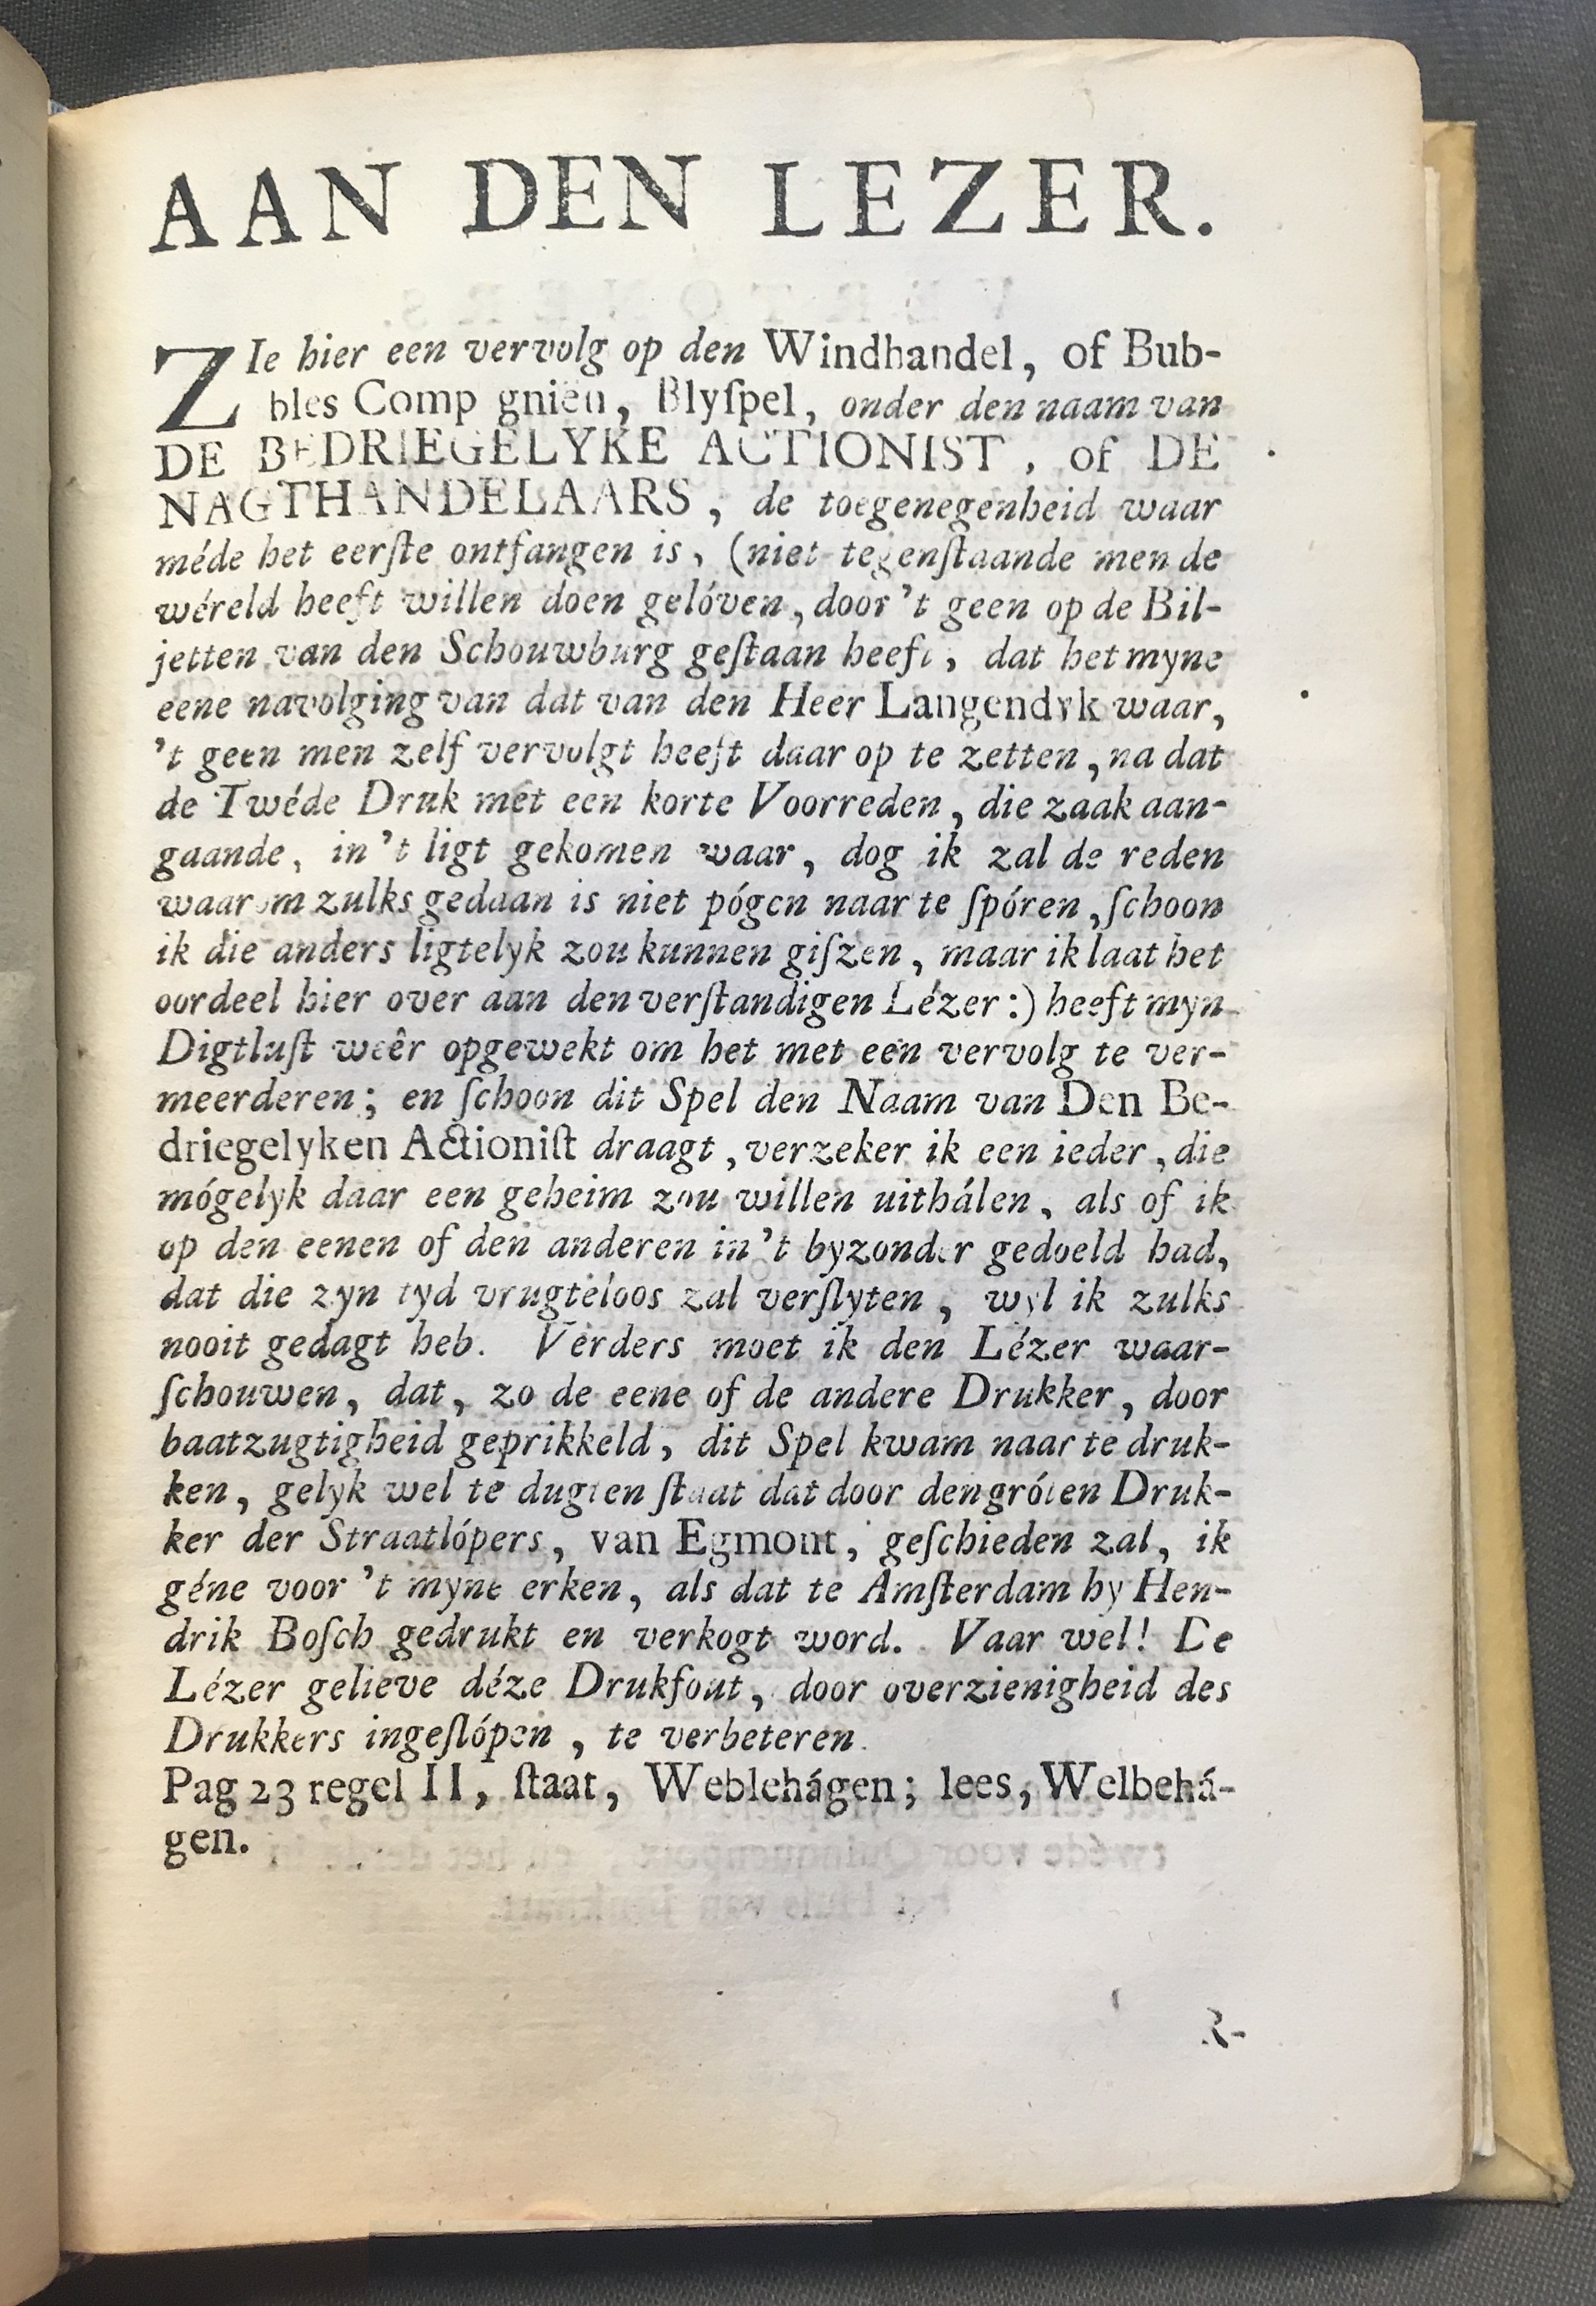 AAN DEN LEZER.
ZIe hier een vervolg op den Windhandel, of Bub-
bles Comp gniën, Blyſpel, onder den naam van
DE BEDRIEGELYKE ACTIONIST, of DE
NAGTHANDELAARS, de toegenegenheid waar
méde het eerſte ontfangen is, (niet tegenſtaande men de
wéreld heeft willen doen gelóven, door 't geen op de Bil-
jetten van den Schouwburg geſtaan heeft, dat het myne
eene navolging van dat van den Heer Langendyk waar,
't geen men zelf vervolgt heeft daar op te zetten, na dat
de Twéde Druk met een korte Voorreden, die zaak aan-
gaande, in 't ligt gekomen waar, dog ik zal de reden
waarom zulks gedaan is niet pógen naar te ſpóren, ſchoon
ik die anders ligtelyk zou kunnen giſzen, maar ik laat het
oordeel hier over aan den verſtandigen Lézer:) heeft myn
Digtluſt weêr opgewekt om het met een vervolg te ver-
meerderen; en ſchoon dit Spel den Naam van Den Be-
driegelyken Actioniſt draagt, verzeker ik een ieder, die
mógelyk daar een geheim zou willen uithálen, als of ik
op den eenen of den anderen in 't byzonder gedoeld had,
dat die zyn tyd vrugteloos zal verſlyten, wyl ik zulks
nooit gedagt heb. Verders moet ik den Lézer waar-
ſchouwen, dat, zo de eene of de andere Drukker, door
baatzugtigheid geprikkeld, dit Spel kwam naar te druk-
ken, gelyk wel te dugten ſtaat dat door den gróten Druk-
ker der Straatlópers, van Egmont, geſchieden zal, ik
géne voor 't myne erken, als dat te Amſterdam by Hen-
drik Boſch gedrukt en verkogt word. Vaar wel! De
Lézer gelieve déze Drukfout, door overzienigheid des
Drukkers ingeſlópen, te verbeteren.
Pag 23 regel II, ſtaat, Weblehágen; lees, Welbehá-
gen.